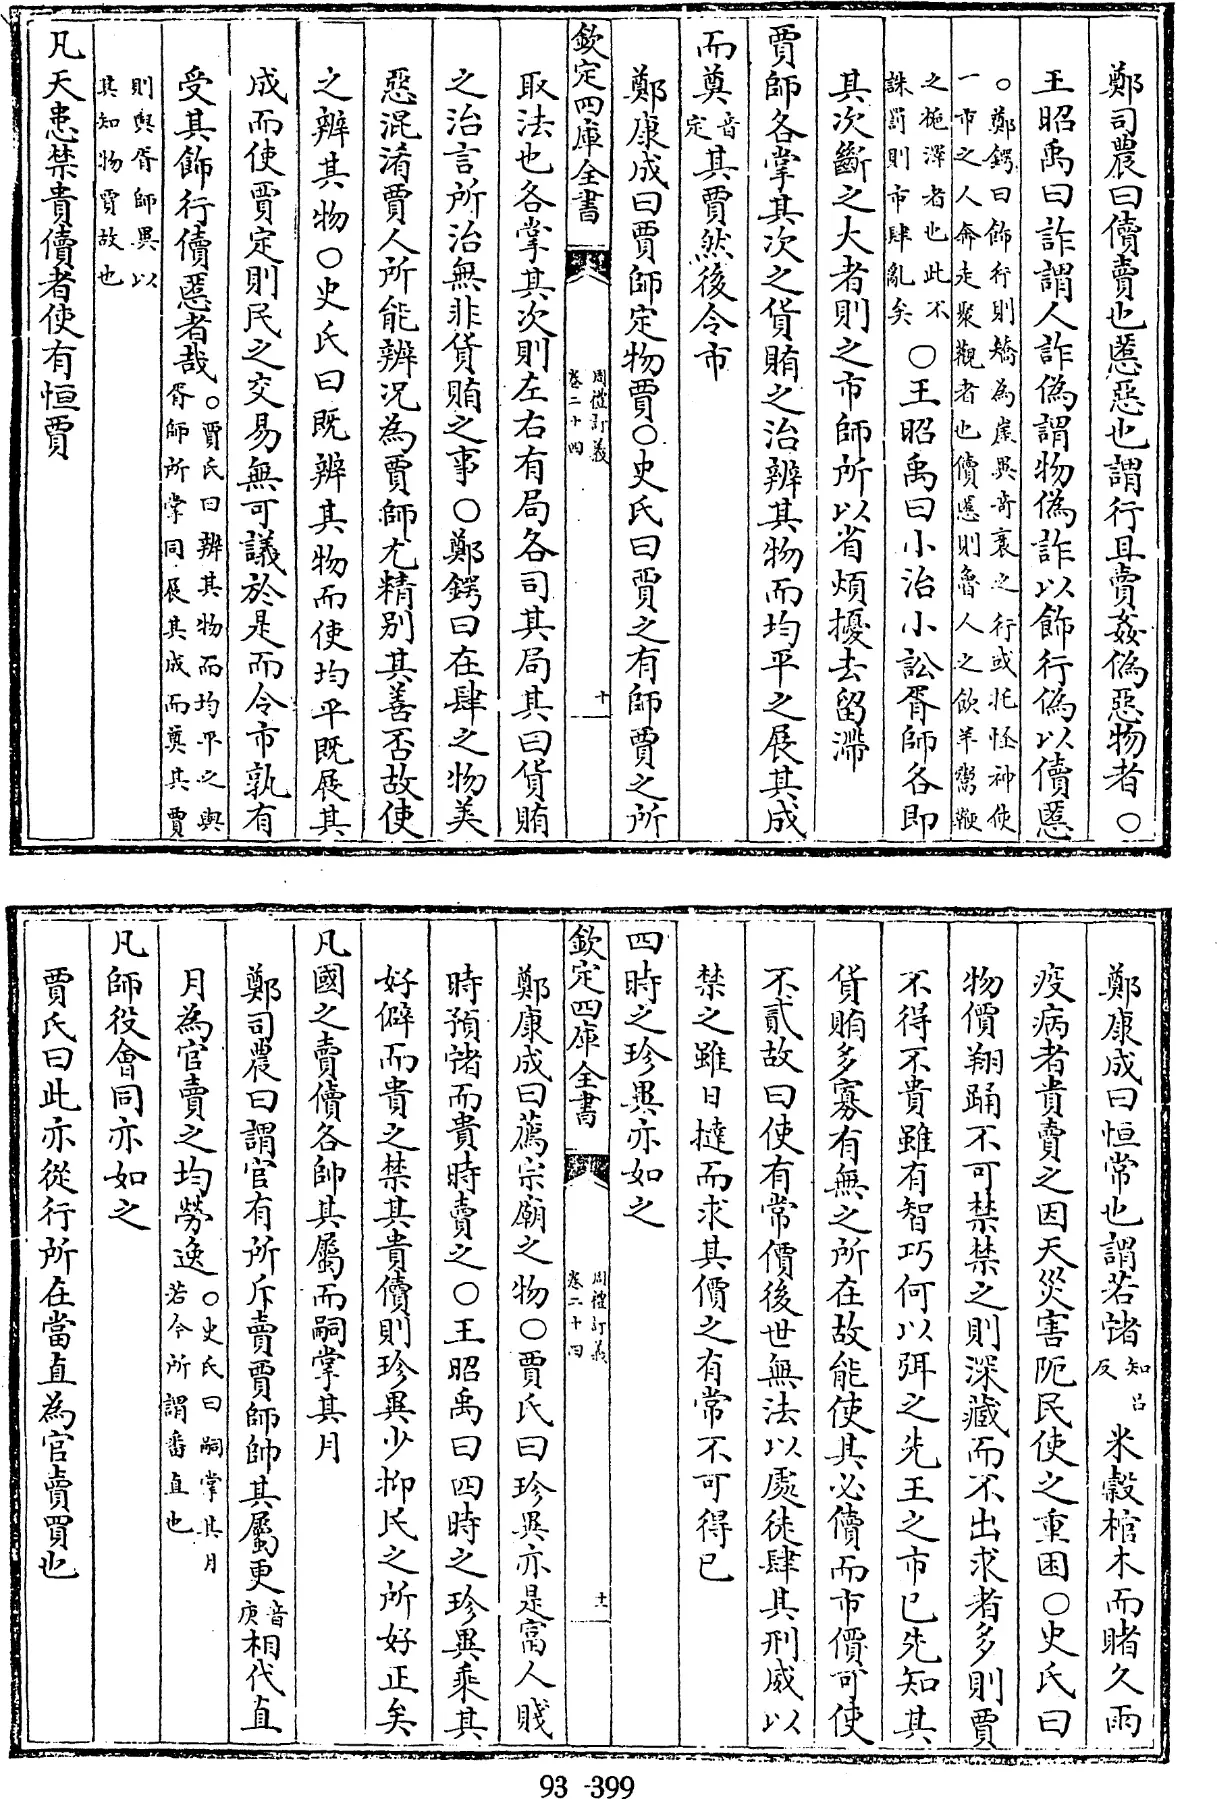 鄭司農曰儥賣也慝惡也謂行且賣姦偽惡物者〇
王昭禹曰詐謂人詐偽謂物偽詐以飾行偽以儥慝
〇鄭鍔曰飾行則矯為崖異奇衺之行或托怪神使
一市之人奔走聚觀者也儥慝則魯人之飲羊鬻鞭
之梔澤者也此不
誅罰則市肆亂矣
〇王昭禹曰小治小訟胥師各即
其次斷之大者則之市師所以省煩擾去留滯
賈師各掌其次之貨賄之治辨其物而均平之展其成
而奠音定其賈然後令市
鄭康成曰賈師定物賈〇史氏曰賈之有師賈之所
欽定四庫全書
周禮訂義
卷二十四
十
取法也各掌其次則左右有局各司其局其曰貨賄
之治言所治無非貨賄之事〇鄭鍔曰在肆之物美
惡混淆賈人所能辨况為賈師尤精别其善否故使
之辨其物〇史氏曰既辨其物而使均平既展其
成而使賈定則民之交易無可議於是而令市孰有
受其飾行儥慝者哉
〇賈氏曰辨其物而均平之與
胥師所掌同展其成而奠其賈
則與胥師異以
其知物賈故也
凡天患禁貴儥者使有恒賈
鄭康成曰恒常也謂若𥡴知呂反米穀棺木而睹久雨
疫病者貴賣之因天災害阨民使之重困〇史氏曰
物價翔踊不可禁禁之則深藏而不出求者多則賈
不得不貴雖有智巧何以弭之先王之市已先知其
貨賄多寡有無之所在故能使其必儥而市價可使
不貳故曰使有常價後世無法以處徒肆其刑威以
禁之雖日撻而求其價之有常不可得已
四時之珍異亦如之
欽定四庫全書
周禮訂義
卷二十四
十一
鄭康成曰薦宗廟之物〇賈氏曰珍異亦是富人賤
時預𥡴而貴時賣之〇王昭禹曰四時之珍異乘其
好僻而貴之禁其貴儥則珍異少抑民之所好正矣
凡國之賣儥各帥其屬而嗣掌其月
鄭司農曰謂官有所斥賣賈師帥其屬更音庚相代直
月為官賣之均勞逸
〇史氏曰嗣掌其月
若今所謂番直也
凡師役會同亦如之
賈氏曰此亦從行所在當直為官賣買也
93-399